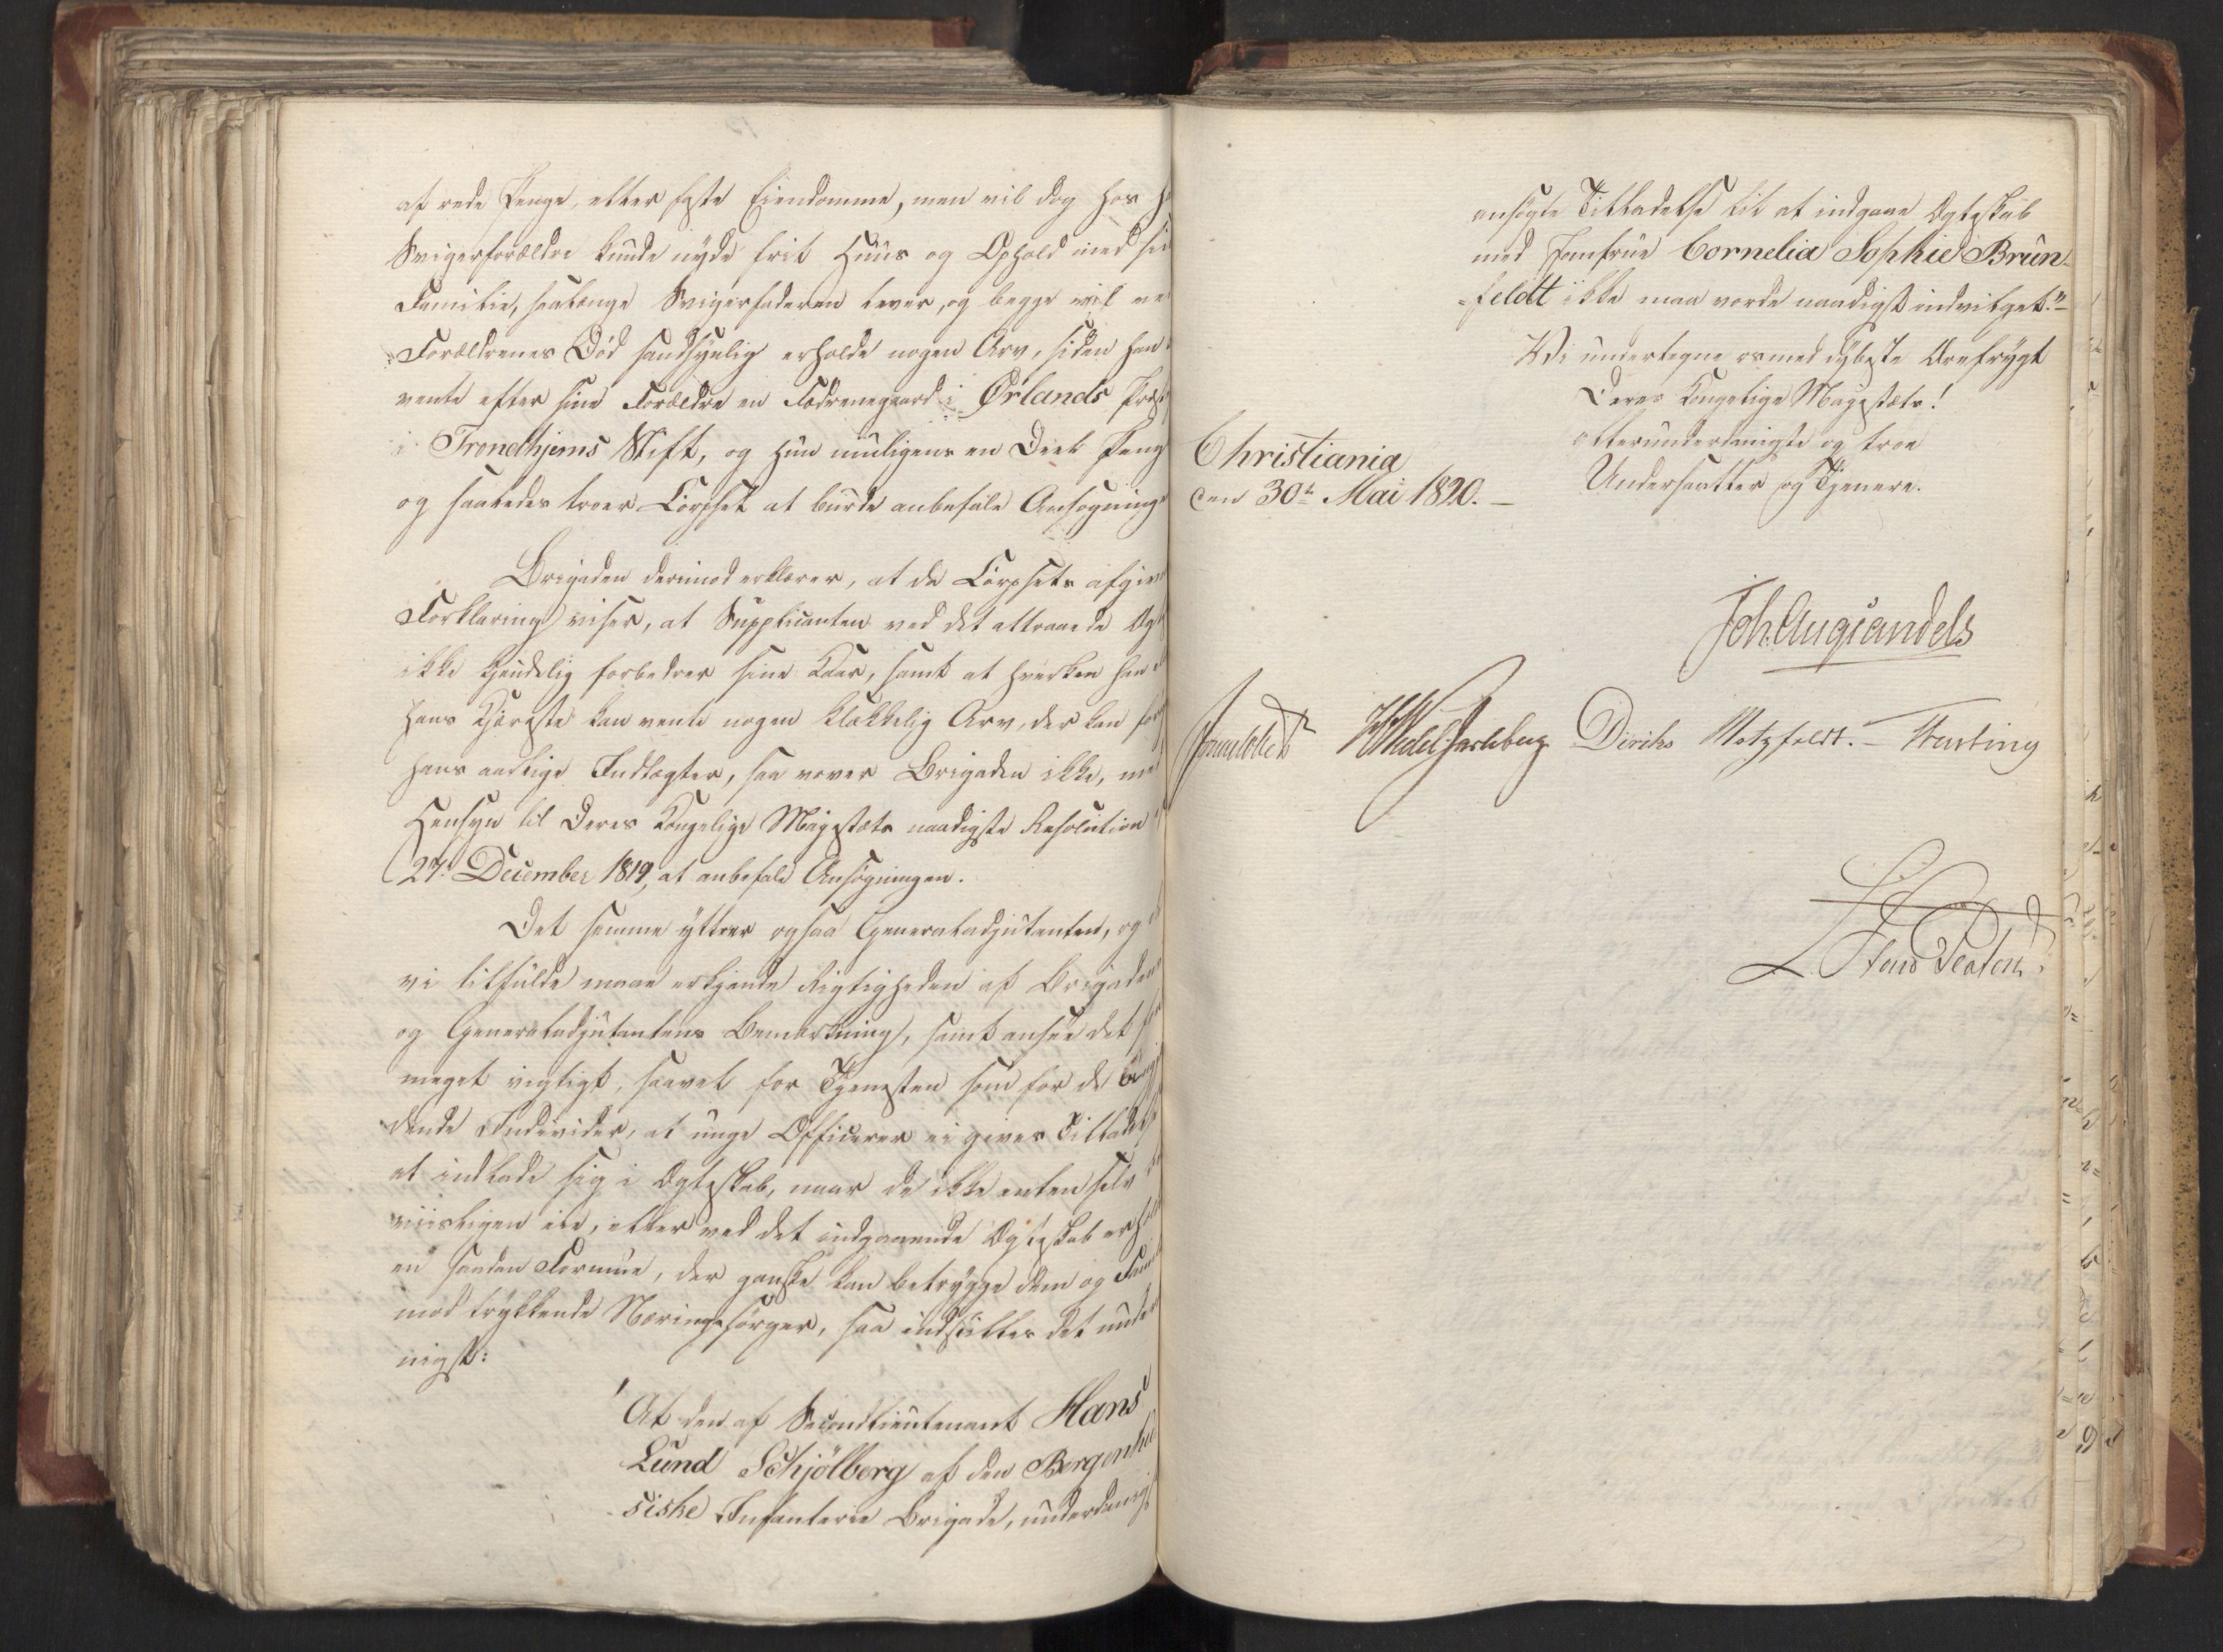 af rede Penge, eller faste Eiendomme, men vil dog hos
Svigerforældre kunde nyde frit Huus og Ophold med
Familie, saalænge Svigerfaderen lever, og begge vil
Forældrenes Död sandsynlig erholde nogen Arv, siden han
vente efter sine Forældre en Fædrenegaard i Ørlands
i Trondhjems Stift, og hun muligens en Deel
og saaledes troer Corpset at burde anbefale
Brigaden derimod erklærer, at da Corpsets
Forklaring viser, at Supplicanten ved det attraaede
ikke kjendelig forbedrer sine Kaar, samt at hverken han
hans Kjæreste kan vente nogen klækkelig Arv, der kan
hans aarlige Indtægter, saa vover Brigaden ikke,
Hensyn til Deres Kongelige Majestæts naadigste Resolution
27 December 1819, at anbefale Ansögningen.
Det samme yttrer ogsaa Generaladjutanten, og
vi tilfulde maae erkjende Rigtigheden af
og Generaladjutantens Bemærkning, samt ansee det
meget vigtigt, saavel for Tjenesten som for de
dende Individer, at unge Officerer ei gives
at indlade sig i Ægteskab, naar de ikke enten selv
eie, eller ved det indgaaende Ægteskab
en saadan Formue, der ganske kan betrygge dem og
mod trykkende Næringssorger, saa indstilles det
nigst:
"At den af Secondlieutenant Hans
Lund Schjölberg af den
siske Infanterie Brigade,
ansögte Tilladelse til at indgaae Ægteskab
med Jomfrue Cornelia Sophie Brun-
-feldt ikke maa vorde naadigst indvilget."
Vi undertegne os med dybeste Ærefrygt
Deres Kongelige Majestæts!
allerunderdanigste og troe
Undersaatter og Tjenere.
Christiania
den 30te Mai 1820.
Joh. Aug. Sandels
Sommerhielm
HWedel Jarlsberg
Diriks
Motzfeldt.
Fasting